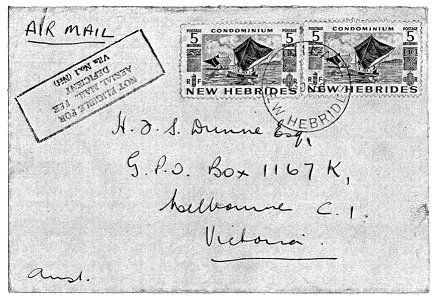 AIR MAIL
NOT ELIGIBLE FOR
AERIAL MAIL FEE
DEFICIENT
Vila No.1 (NH)
POSTAGE CONDOMINIUM POSTAGE
5 5
F
NEW HEBRIDES
POSTAGE CONDOMINIUM POSTAGE
5 5
F
NEW HEBRIDES
W HEBRIDES
H. J. S. Dunne Esq,
G.P.O. Box 1167 K,
Melbourne C.1.
Victoria.
Aust.